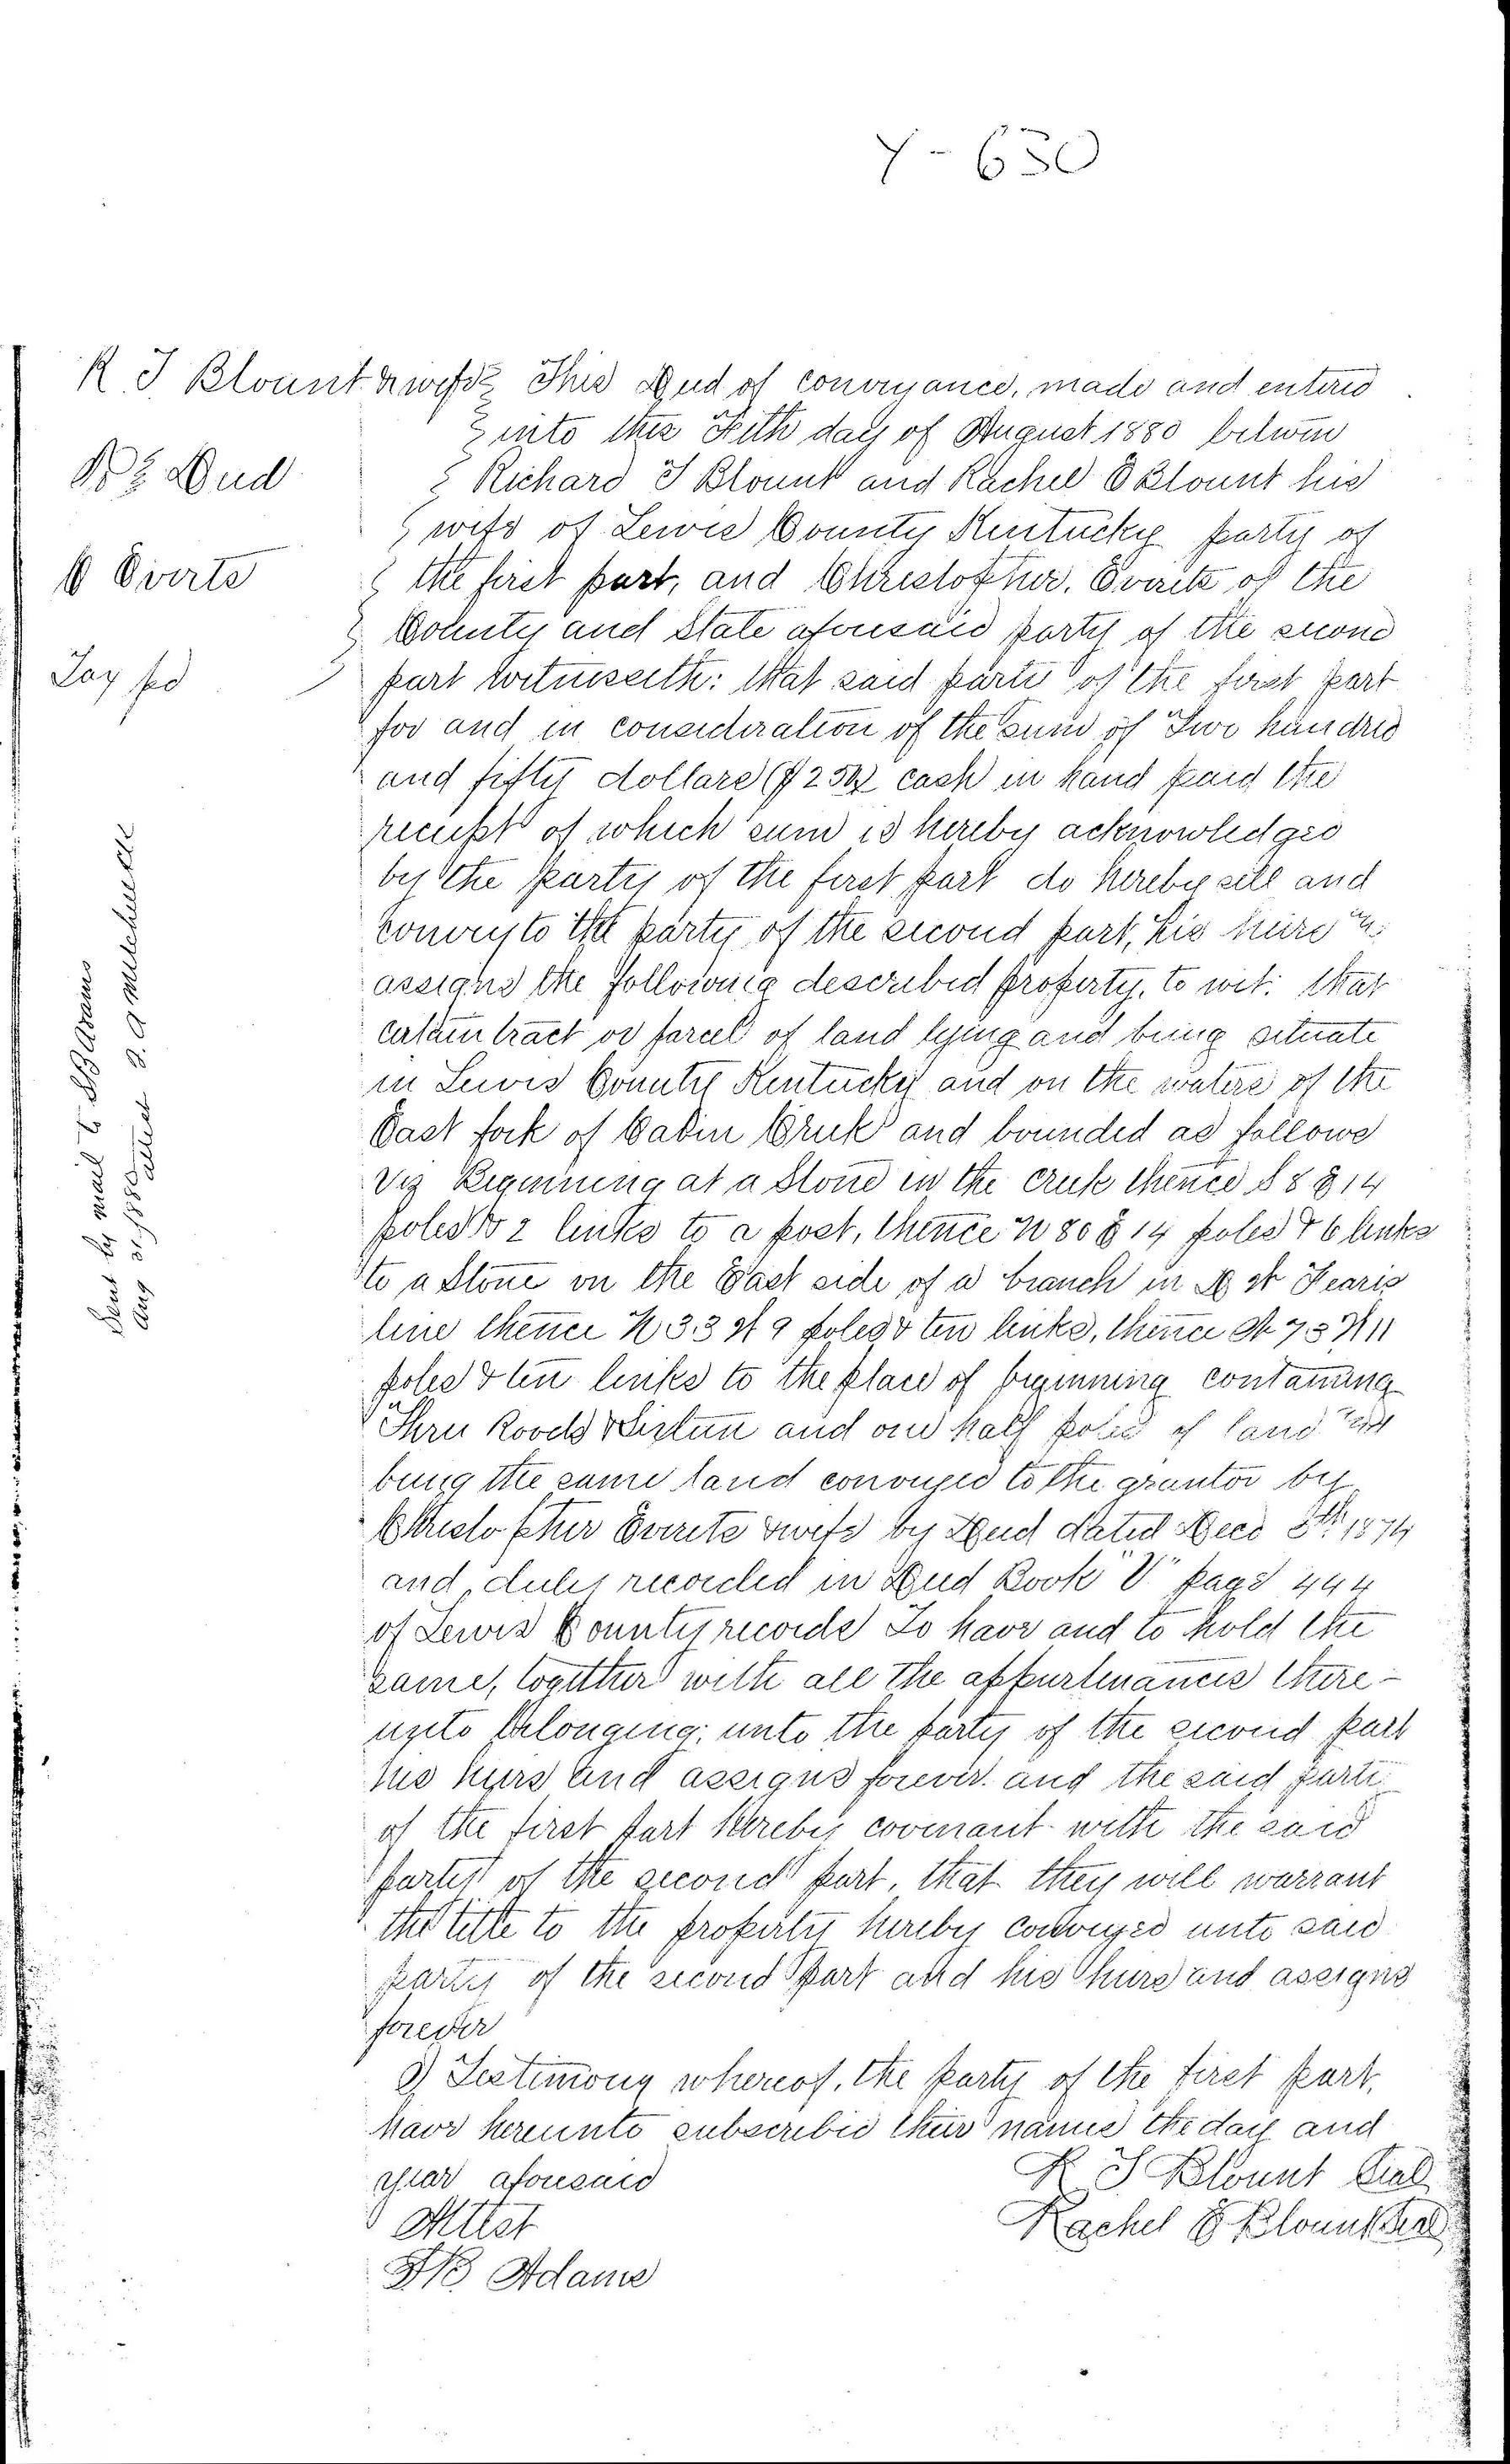 Y-630
R. J. Blount & wife This Deed of conveyance, made and entered
into this Fifth day of August 1880 between
To Deed Richard J Blount and Rachel E Blount his
wife of Lewis County Kentucky party of
C Everts the first part, and Christopher Everts of the
County and State aforesaid party of the second
Tax pd part witnesseth: that said parti of the first part
for and in consideration of the sum of Two hundred
and fifty dollars ($250) cash in hand paid the
receipt of which sum is hereby acknowledged
by the party of the first part do hereby sell and
convey to the party of the second part, his heirs &
assigns the following described property, to wit: that
certain tract or parcel of land lying and being situate
in Lewis County Kentucky and on the waters of the
East fork of Cabin Creek and bounded as follows
viz Beginning at a stone in the creek thence S 8 E 14
poles & 2 links to a post, thence N 80 E 14 poles & 6 links
to a stone on the East side of a branch in Fearis
line thence N 33 W 9 poles & ten links, thence 11
poles & ten links to the place of beginning containing
Three Roods & Sixteen and one half poles of land and
being the same land conveyed to the grantor by
Christopher Everets & wife by Deed dated Decd 8th 1874
and duly recorded in Deed Book "V" page 444
of Lewis County records To have and to hold the
same, together with all the appurtenances there-
unto belonging: unto the party of the second part
his heirs and assigns forever. and the said parti
of the first part hereby covenant with the said
party of the second part, that they will warrant
the title to the property hereby conveyed unto said
party of the second part and his heirs and assigns
forever
In Testimony whereof, the party of the first part,
have hereunto subscribed their names the day and
year aforesaid R J Blount Seal
Attest Rachel E Blount Seal
Adams
Sent by mail to Adams
Aug 31, 1880 attest